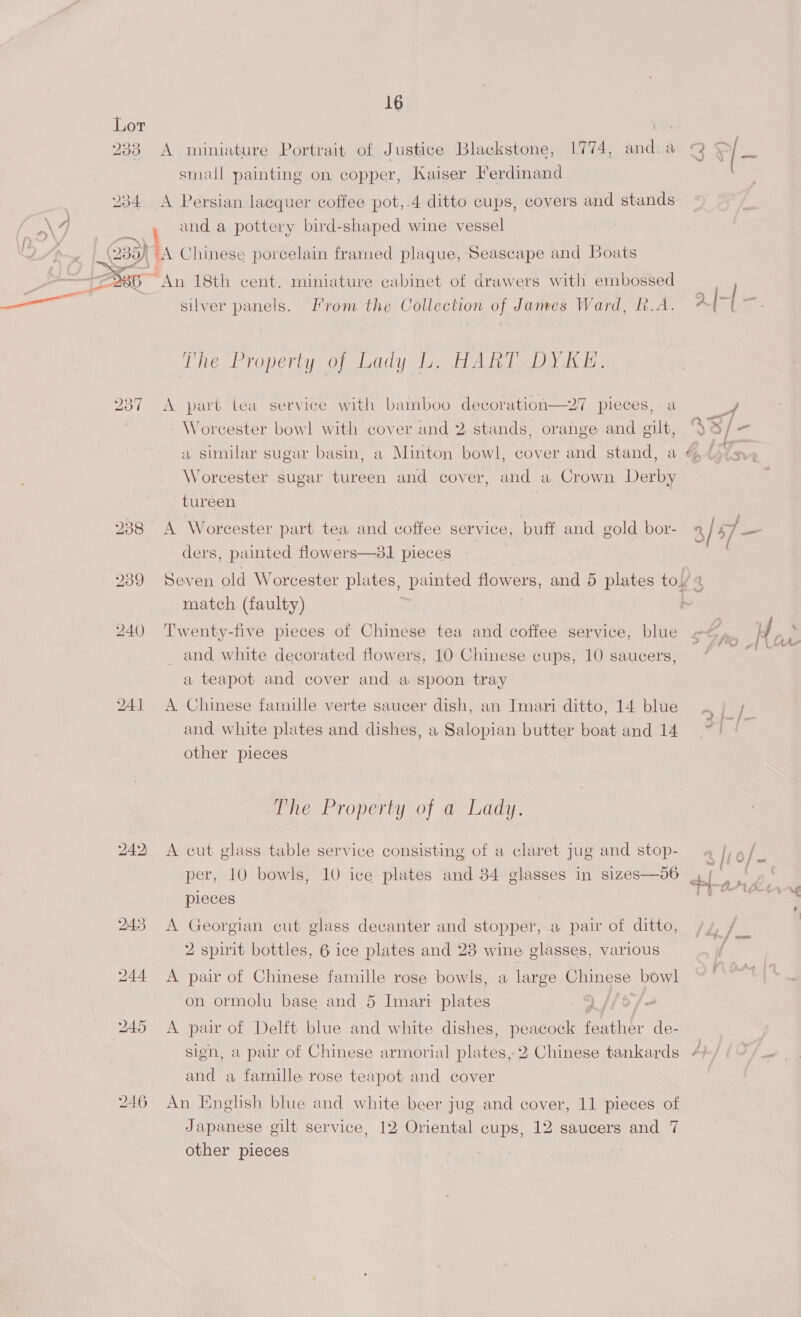 16
Lot
233 A miniature Portrait of Justice Blackstone, 1774, and a
small painting on copper, Kaiser Ferdinand
234 A Persian lacquer coffee pot, 4 ditto cups, covers and stands
and a pottery bird-shaped wine vessel
235 A Chinese porcelain framed plaque, Seascape and Boats
236 An 18th cent. miniature cabinet of drawers with embossed
silver panels. From the Collection of James Ward, R.A.
The Property of Lady L. HART DYKE.
237 A part tea service with bamboo decoration—27 pieces, a
Worcester bowl with cover and 2 stands, orange and gilt,
a similar sugar basin, a Minton bowl, cover and stand, a
Worcester sugar tureen and cover, and a Crown Derby
tureen
238 A Worcester part tea and coffee service, buff and gold bor-
ders, painted flowers—31 pieces
239 Seven old Worcester plates, painted flowers, and 5 plates to
match (faulty)
240 Twenty-five pieces of Chinese tea and coffee service, blue
and white decorated flowers, 10 Chinese cups, 10 saucers,
a teapot and cover and a spoon tray
241 A Chinese famille verte saucer dish, an Imari ditto, 14 blue
and white plates and dishes, a Salopian butter boat and 14
other pieces
The Property of a Lady.
242 A cut glass table service consisting of a claret jug and stop-
per, 10 bowls, 10 ice plates and 34 glasses in sizes—56
pieces
243 A Georgian cut glass decanter and stopper, a pair of ditto,
2 spirit bottles, 6 ice plates and 23 wine glasses, various
244 A pair of Chinese famille rose bowls, a large Chinese bowl
on ormolu base and 5 Imari plates
245 A pair of Delft blue and white dishes, peacock feather de-
sign, a pair of Chinese armorial plates, 2 Chinese tankards
and a famille rose teapot and cover
246 An English blue and white beer jug and cover, 11 pieces of
Japanese gilt service, 12 Oriental cups, 12 saucers and 7
other pieces